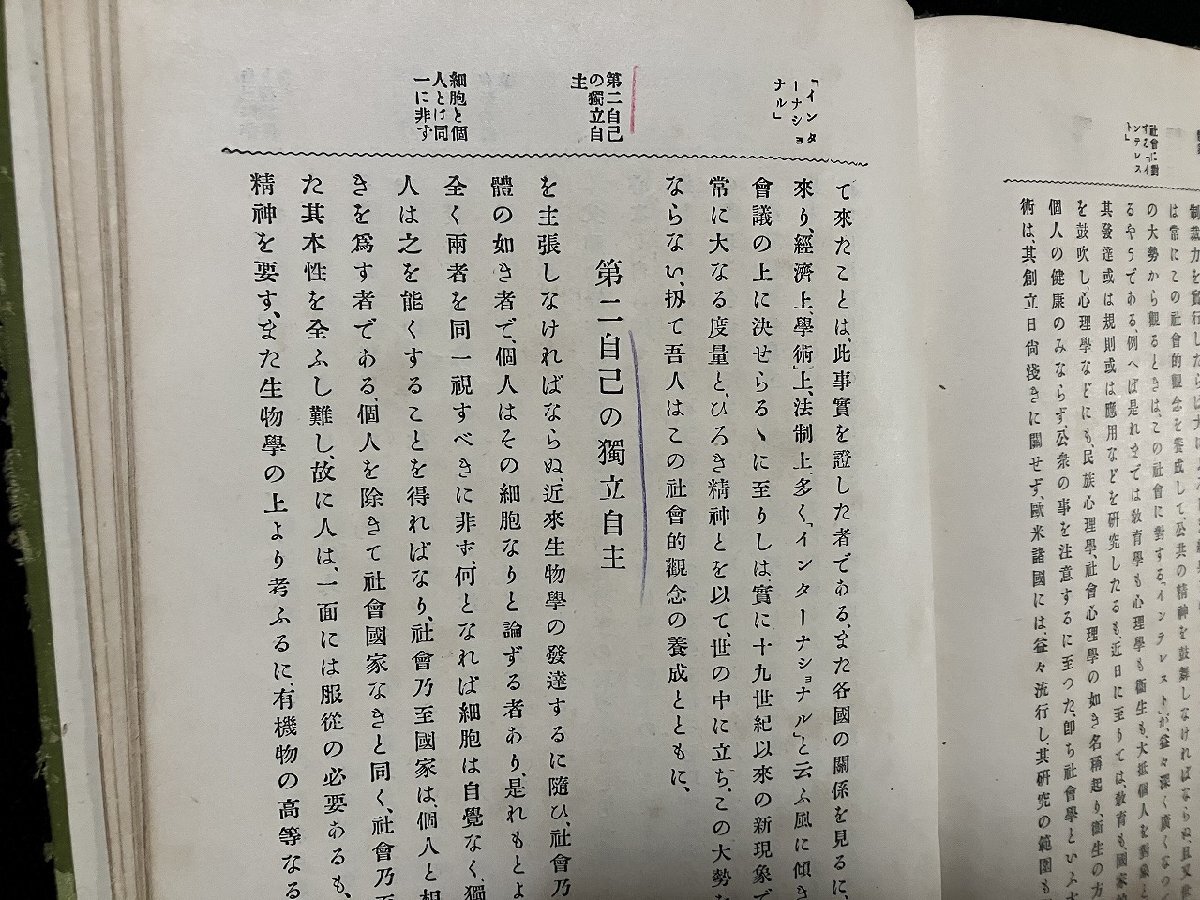 社會に對
するイ
ンテレス
ト」
制裁力を實行したら
は常にこの社會的觀念を養成して、公共の精神を鼓舞しなければならぬ、且又世
の大勢から觀るときは、この社會に對する、インテレスト」が、益々深く廣くなつ
るやうである、例へば是れまでは敎育學も心理學も衞生も、大抵個人を對象と
其發達或は規則或は應用などを研究したるも、近日に至りては、敎育も國家的
を鼓吹し心理學などにも民族心理學、社會心理學の如き名稱起り、衞生の方
個人の健康のみならず、公衆の事を注意するに至つた、卽ち社會學といふ
術は、其創立日尙淺きに關せず、歐米諸國には、益々流行し其硏究の範圍も
「インタ
ーナショ
ナル」
第二自己
の獨立自
主
細胞と個
人とは同
一に非ず
て來たことは、此事實を證した者である、また各國の關係を見るに、
來り、經濟上、學術上、法制上、多く「インターナショナル」と云ふ風に傾き
會議の上に決せらるゝに至りしは實に十九世紀以來の新現象で
常に大なる度量と、ひろき精神とを以て、世の中に立ち、この大勢を
ならない、扨て吾人はこの社會的觀念の養成とともに、
第二自己の獨立自主
を主張しなければならぬ、近來生物學の發達するに隨ひ、社會乃
體の如き者で、個人はその細胞なりと論ずる者あり、是れもとよ
全く兩者を同一視すべきに非ず、何となれば細胞は自覺なく、獨
人は之を能くすることを得ればなり、社會乃至國家は、個人と相
きを爲す者である、個人を除きて社會國家なきと同く、社會乃至
た其本性を全ふし難し、故に人は、一面には服從の必要あるも、
精神を要す、また生物學の上より考ふるに、有機物の高等なる